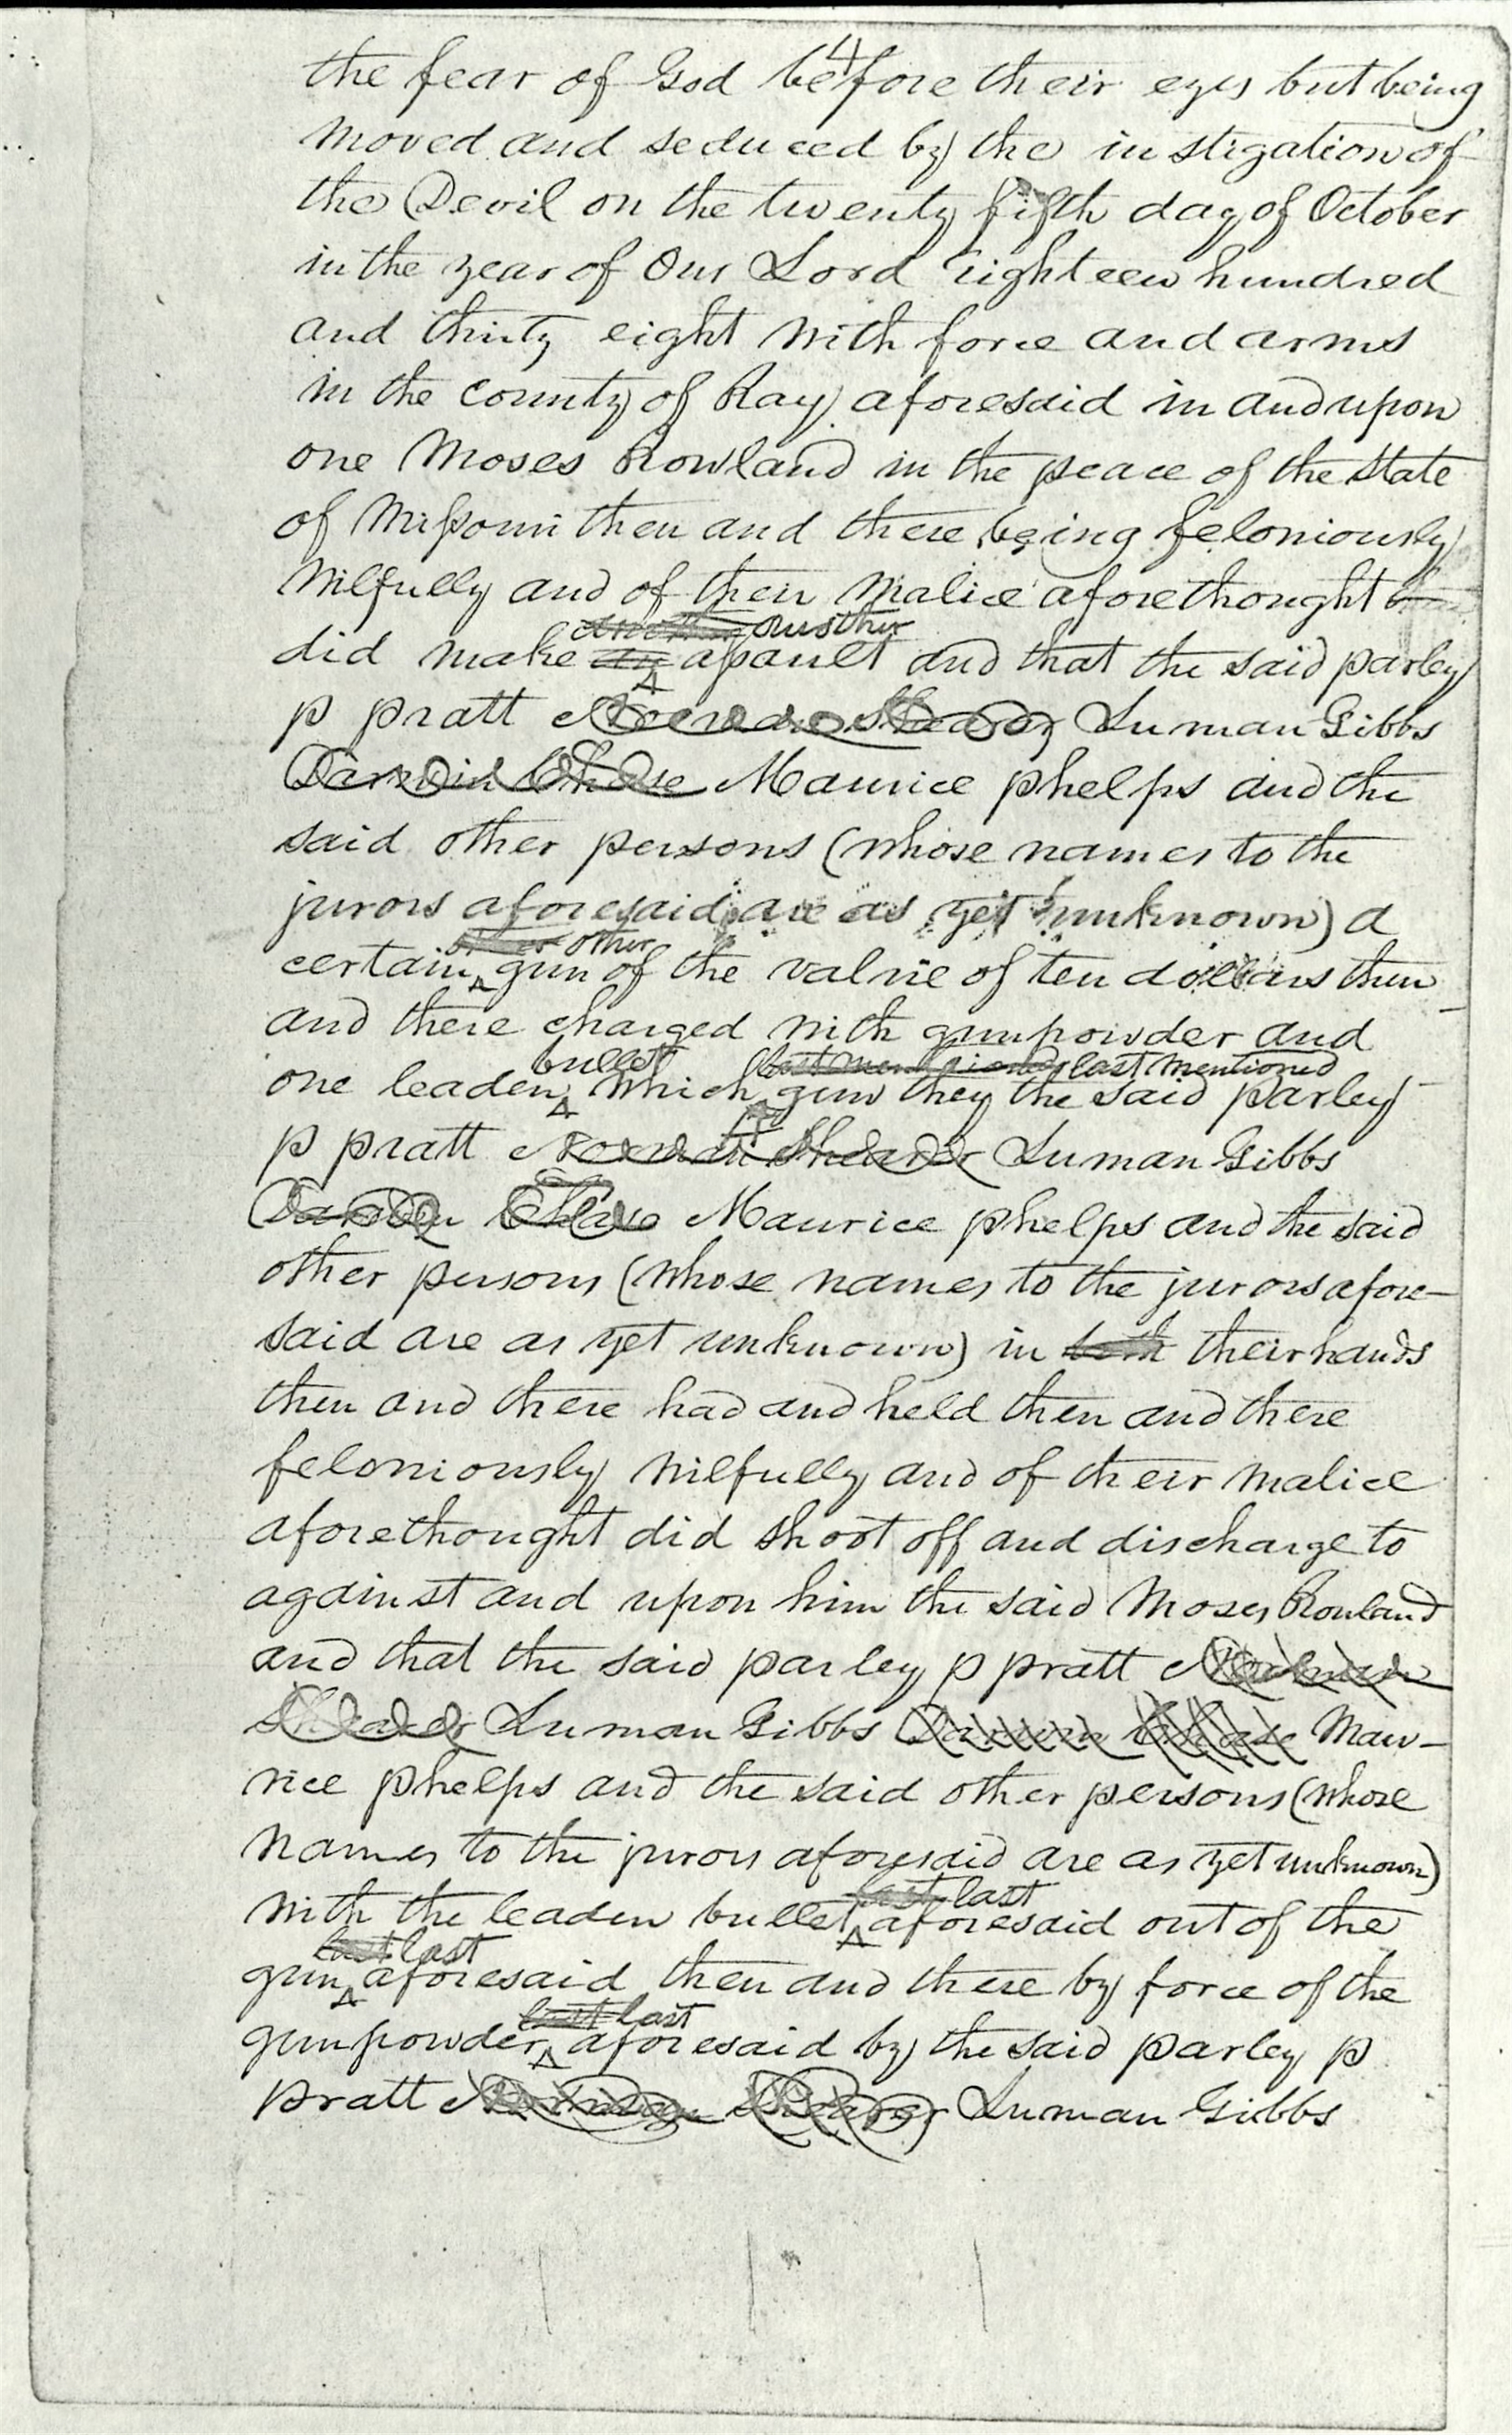 4
the fear of God before their eyes but being
moved and seduced by the instigation of
the Devil on the twenty fifth day of October
in the year of Our Lord eighteen hundred
and thirty eight with force and arms
in the county of Ray aforesaid in and upon
one Moses Rowland in the peace of the State
of Missouri then and there being feloniously
wilfully and of their malice aforethought
another another
did make an assault and that the said parley
p pratt Norman Shearer Luman Gibbs
Darwin Chase Maurice phelps and the
said other persons (whose names to the
jurors aforesaid are as yet unknown) a
other other
certain gun of the value of ten dollars then
and there charged with gunpowder and
bullet last mentioned last mentioned
one leaden which gun they the said parley
p pratt Norman Shearer Luman Gibbs
Darwin Chase Maurice phelps and the said
other persons (whose names to the jurors afore-
said are as yet unknown) in both their hands
then and there had and held then and there
feloniously wilfully and of their malice
aforethought did shoot off and discharge to
against and upon him the said Moses Rowland
and that the said parley p pratt Norman
Shearer Luman Gibbs Darwin Chase Mau-
rice phelps and the said other persons (whose
names to the jurors aforesaid are as yet unknown)
last last
with the leaden bullet aforesaid out of the
last last
gun aforesaid then and there by force of the
last last
gunpowder aforesaid by the said parley p
pratt Norman Shearer Luman Gibbs